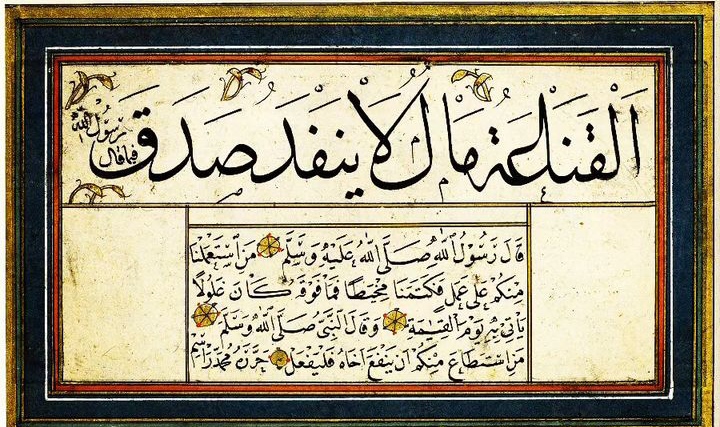 القناعة مال لا ينفد صدق
رسول الله
فيما قال
قال رسول الله صلى الله عليه وسلم من استعملنا
منكم على عمل فكتمنا مخيطا فما فوقه كان غلولا
يأتي به يوم القيمة وقال النبي صلى الله وسلم
من استطاع منكم ان ينفع اخاه فليفعل حرره محمد راسم